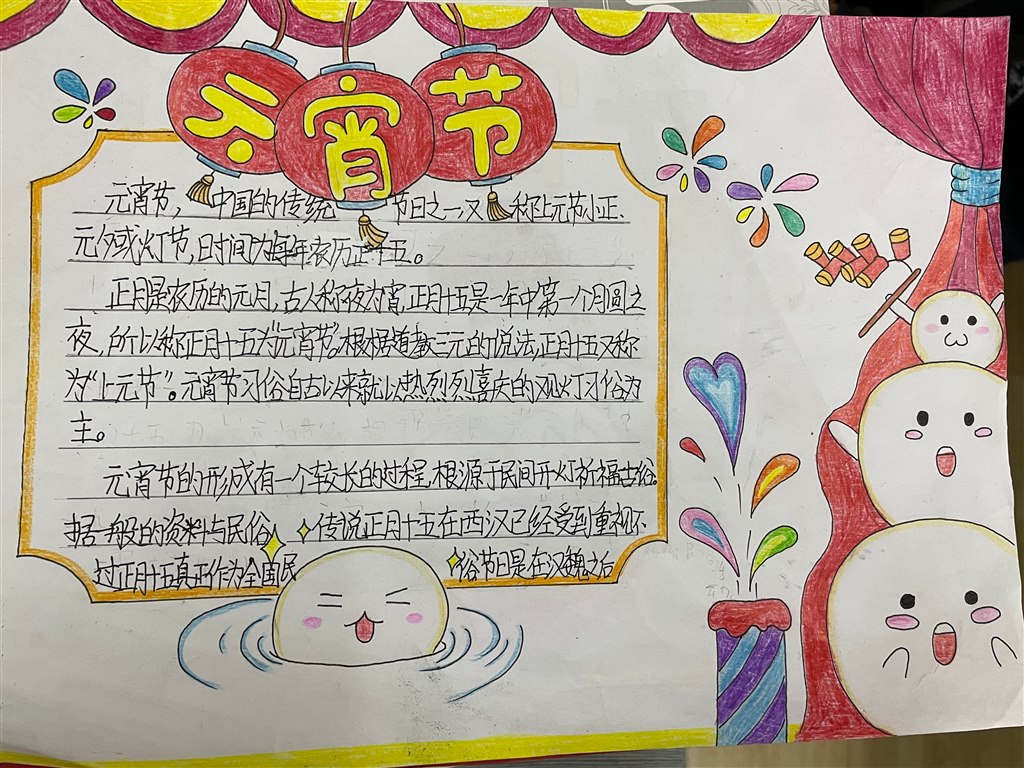 元宵节
元宵节, 中国的传统节日之一,又称上元节小正
元夕或灯节,日时间为每年农历正十五。
正月是农历的元月,古人称夜为宵,正月十五是一年中第一个月圆之
夜,所以称正月十五为“元宵节”。根据道教三元的说法,正月十五又称
为“上元节”。元宵节习俗自古以来就以热烈烈喜庆的观灯习俗为
主。
元宵节的形成有一个较长的过程,根源于民间开灯祈福古俗。
据一般的资料与民俗传说正月十五在西汉已经受到重视不
过正月十五真正作为全国民俗节日是在汉魏之后